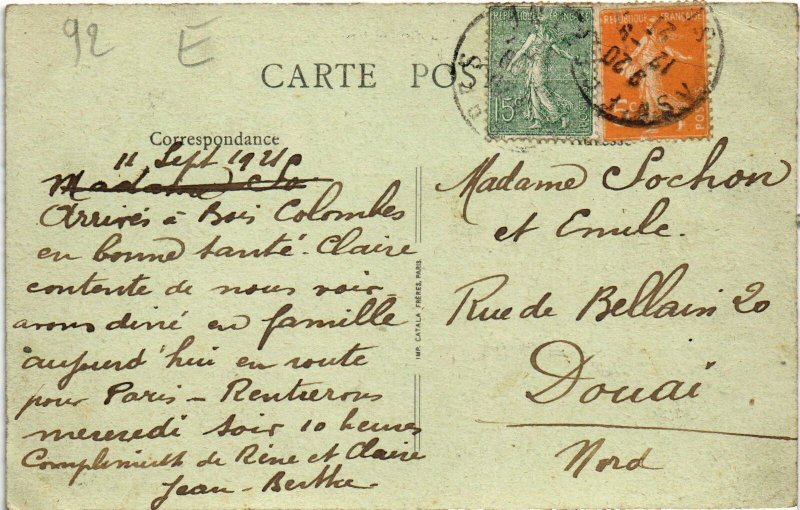 92 E
CARTE POS
RÉPUBLIQUE FRANÇAISE
15c
5c
POS
Correspondance
Adresse
11 Sept 1921
Madame So
Arrivés à Bois Colombes
en bonne santé. Claire
contente de nous voir
avons diné en famille
aujourd'hui en route
pour Paris - Rentrerons
mercredi soir 10 heures
Compliments de Rine et Claire
Jean-Berthe
IMP. CATALA FRÈRES, PARIS
Madame Sochon
et Emile.
Rue de Bellain 20
Douai
Nord